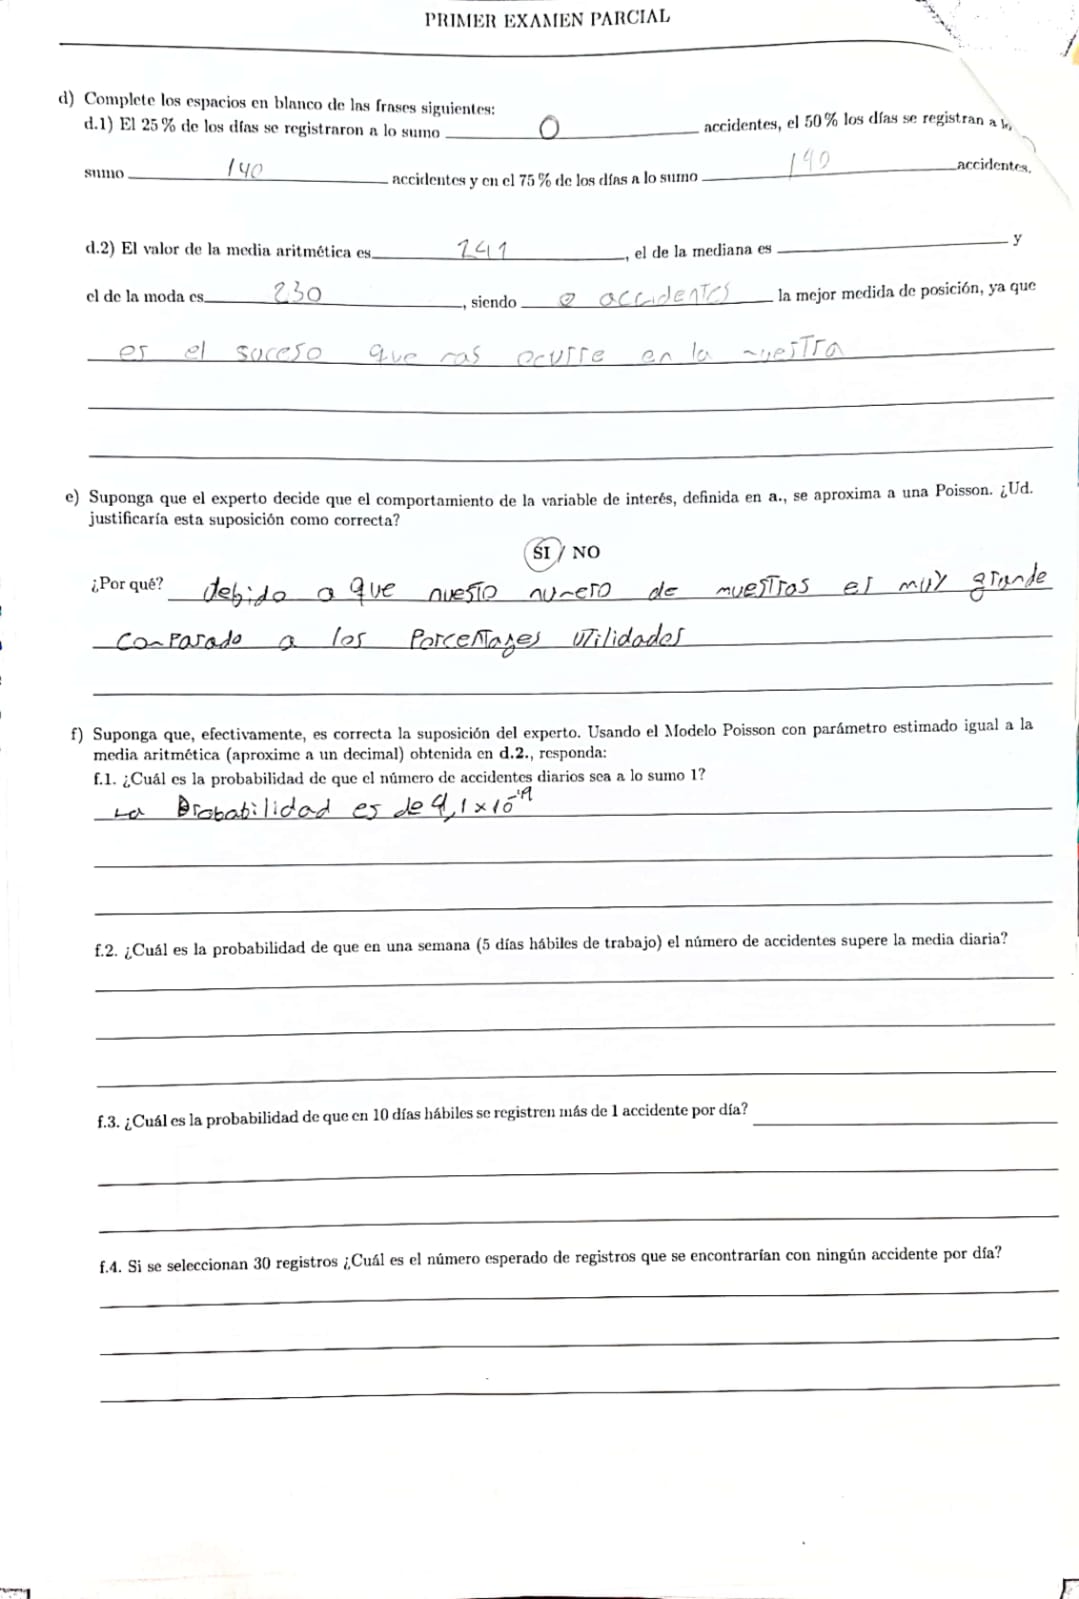 PRIMER EXAMEN PARCIAL
d) Complete los espacios en blanco de las frases siguientes:
d.1) El 25 % de los días se registraron a lo sumo 0 accidentes, el 50 % los días se registran a lo
sumo 140 accidentes y en el 75 % de los días a lo sumo 190 accidentes.
d.2) El valor de la media aritmética es 241, el de la mediana es y
el de la moda es 230, siendo 0 accidentes la mejor medida de posición, ya que
es el suceso que mas ocurre en la muestra
e) Suponga que el experto decide que el comportamiento de la variable de interés, definida en a., se aproxima a una Poisson. ¿Ud.
justificaría esta suposición como correcta?
SI / NO
¿Por qué? debido a que nuesto numero de muestras es muy grande
comparado a los porcentages utilidados
f) Suponga que, efectivamente, es correcta la suposición del experto. Usando el Modelo Poisson con parámetro estimado igual a la
media aritmética (aproxime a un decimal) obtenida en d.2., responda:
f.1. ¿Cuál es la probabilidad de que el número de accidentes diarios sea a lo sumo 1?
La Probabilidad es de 4,1 x 10
f.2. ¿Cuál es la probabilidad de que en una semana (5 días hábiles de trabajo) el número de accidentes supere la media diaria?
f.3. ¿Cuál es la probabilidad de que en 10 días hábiles se registren más de 1 accidente por día?
f.4. Si se seleccionan 30 registros ¿Cuál es el número esperado de registros que se encontrarían con ningún accidente por día?